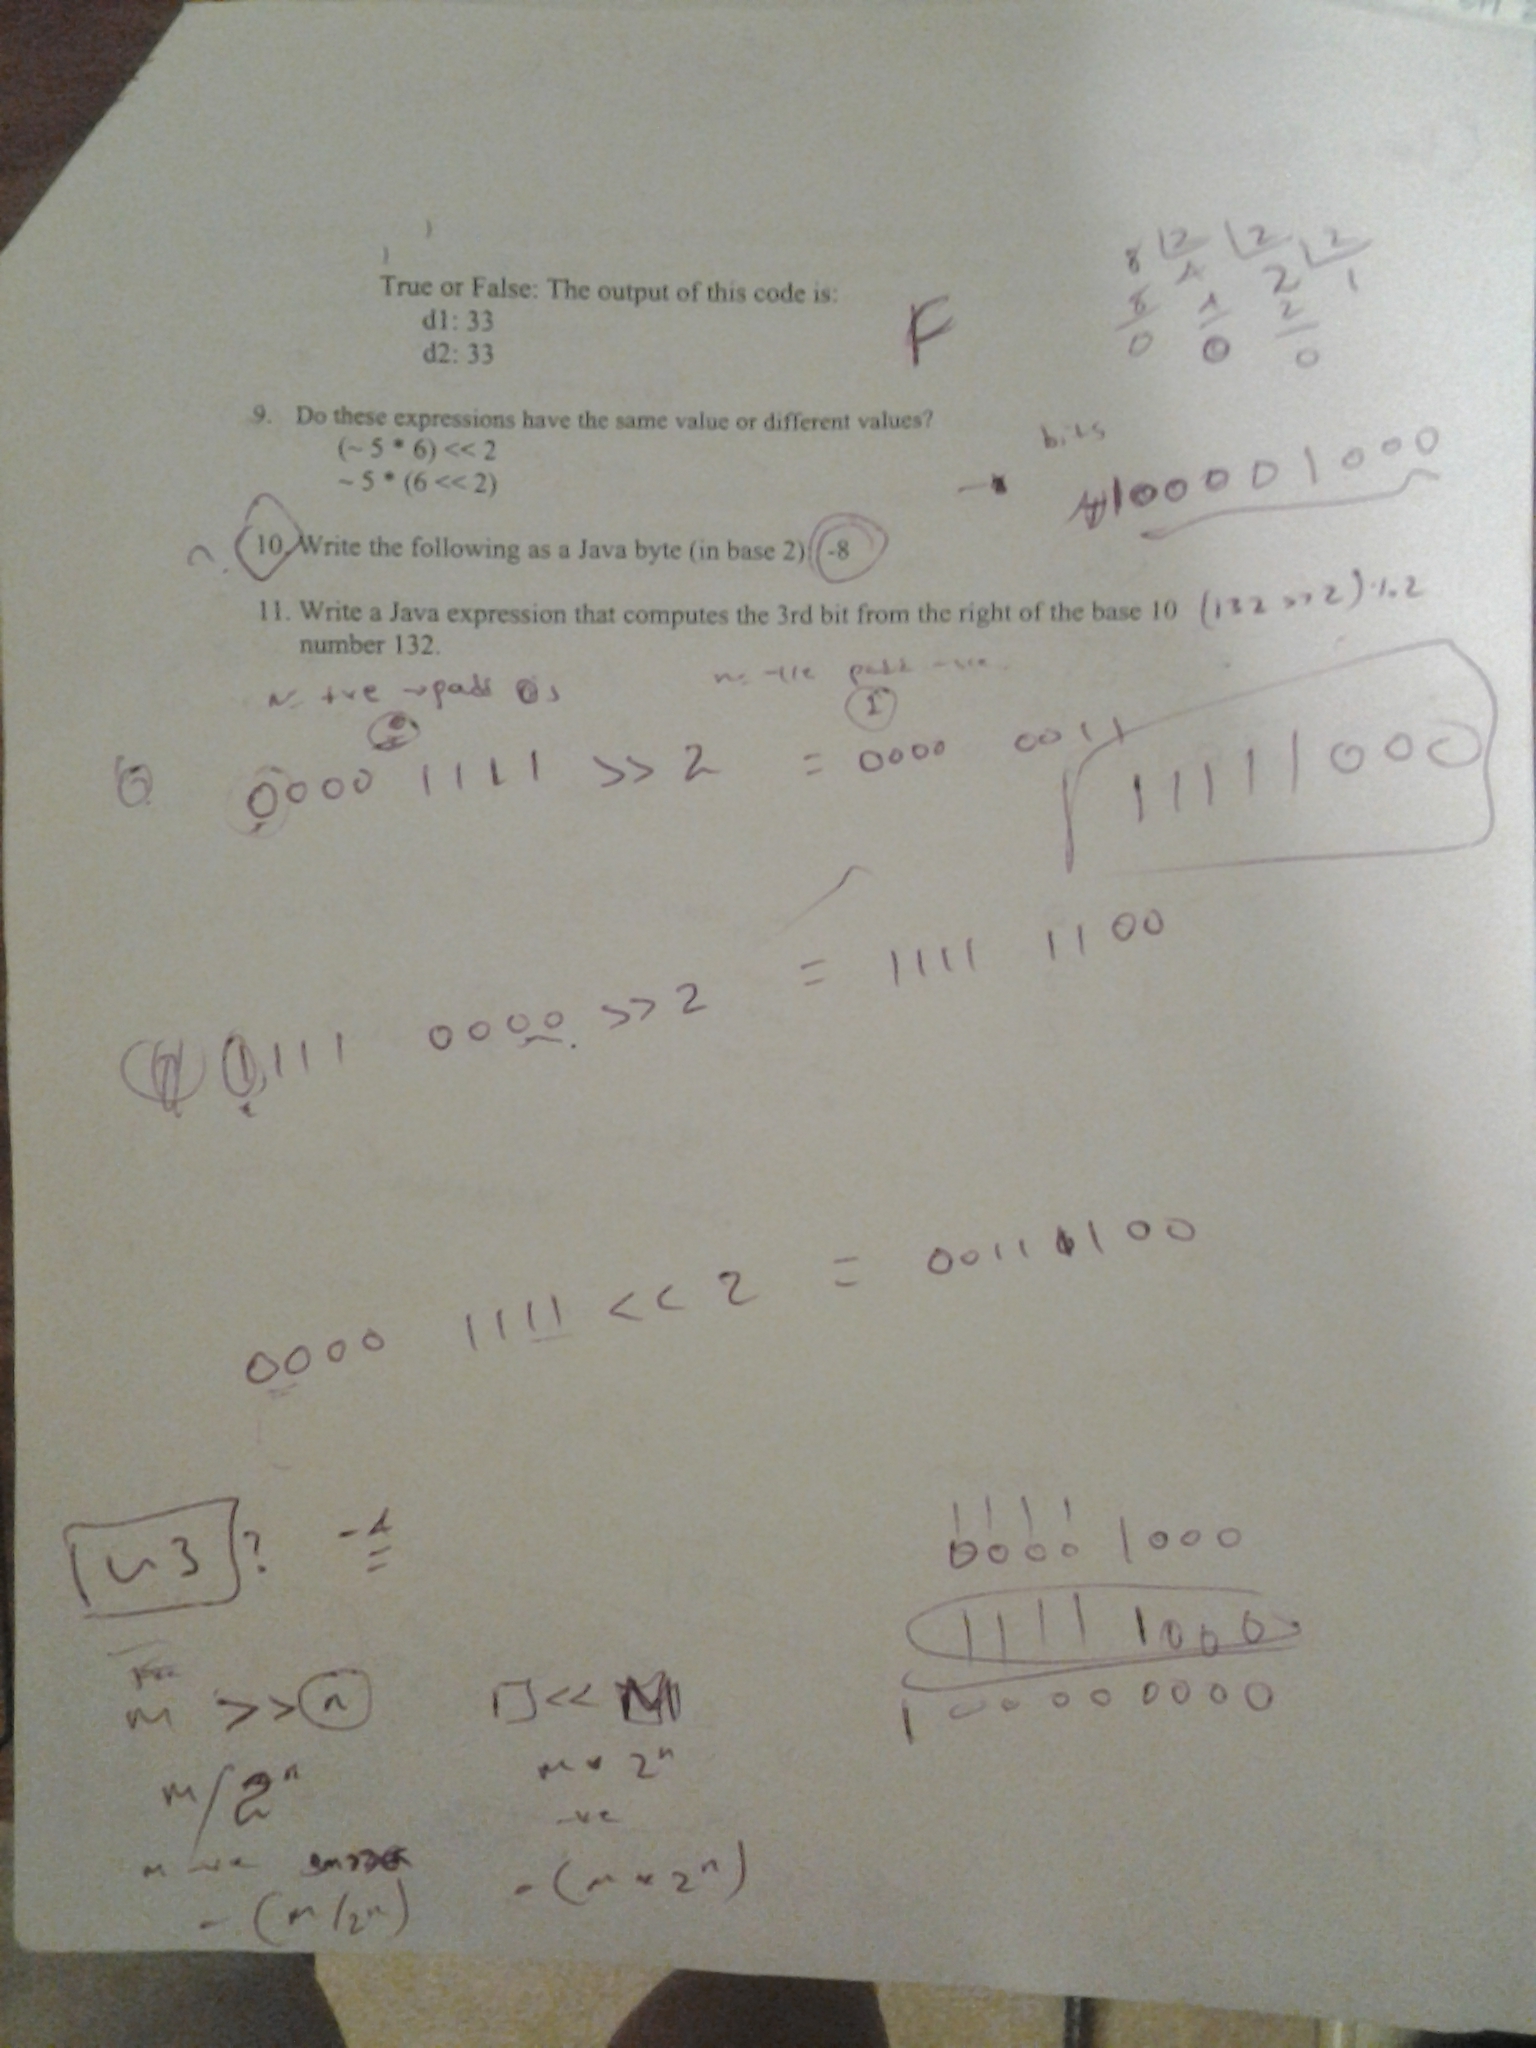 True or False: The output of this code is:
d1: 33
d2: 33
F
8 2 2 2
4 2 1
8 4 2
0 0 0
9. Do these expressions have the same value or different values?
(~ 5 * 6) << 2
~ 5 * (6 << 2)
bits
100001000
10. Write the following as a Java byte (in base 2): -8
11. Write a Java expression that computes the 3rd bit from the right of the base 10
number 132.
(132 >> 2) % 2
+ve → padd 0s
-ve padd
0000 1111 >> 2 = 0000 0011
11111000
1111 0000 >> 2 = 1111 1100
0000 1111 << 2 = 00111100
3 ?
1111
0000 1000
1111 1000
1 0000 0000
m >> n
<<
m / 2ⁿ
m * 2ⁿ
-ve
m -ve
- (m / 2ⁿ)
- (m * 2ⁿ)